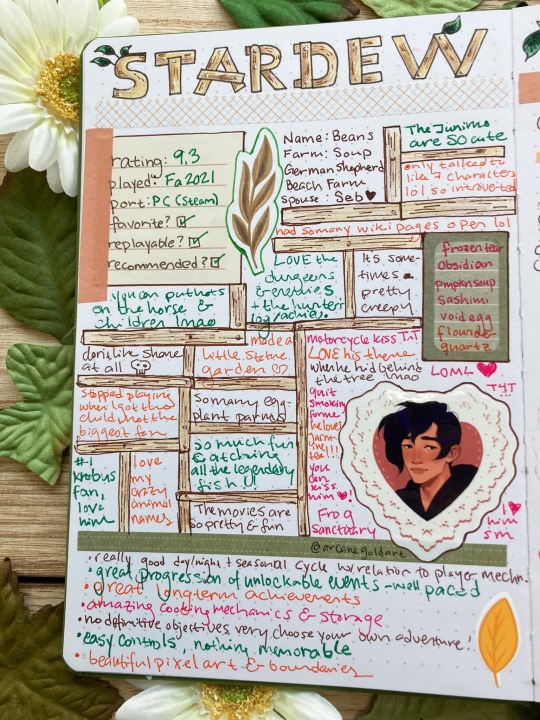 STARDEW
rating: 9,3
played: Fa 2021
port: PC (Steam)
favorite?
replayable?
recommended?
Name: Beans
Farm: Soup
German Shepherd
Beach Farm
Spouse: Seb
The Junimo
are SO cute
only talked to
like 7 characters
lol so introverted
had so many wiki pages open lol
LOVE the
dungeons
& enemies
+ the hunter
log / achiev.
It's some-
times a
pretty
creepy
frozen tear
Obsidian
pmpkn soup
Sashimi
void egg
flounder
quartz
LOML
TヘT
you can put hats
on the horse &
children lmao
don't like Shane
at all
made a
little statue
garden
motorcycle kiss TnT
LOVE his theme
when he hid behind
the tree lmao
quit
smoking
for me
he loves
you
can
kiss
him
!
Stopped playing
when I got the
child, not the
biggest fan
So many egg-
plant parms
So much fun
catching
all the legendary
fish!!
#1
krobus
fan,
love
him
love
my
crazy
animal
names
The movies are
so pretty & fun
Frog
Sanctuary
him
sm
@arcanegoldart
• really good day/night + seasonal cycle w relation to player mechn.
• great progression of unlockable events - well paced
• great longterm achievements
• amazing cooking mechanics & storage
• no definitive objectives, very choose your own adventure!
• easy controls, nothing memorable
• beautiful pixel art & boundaries